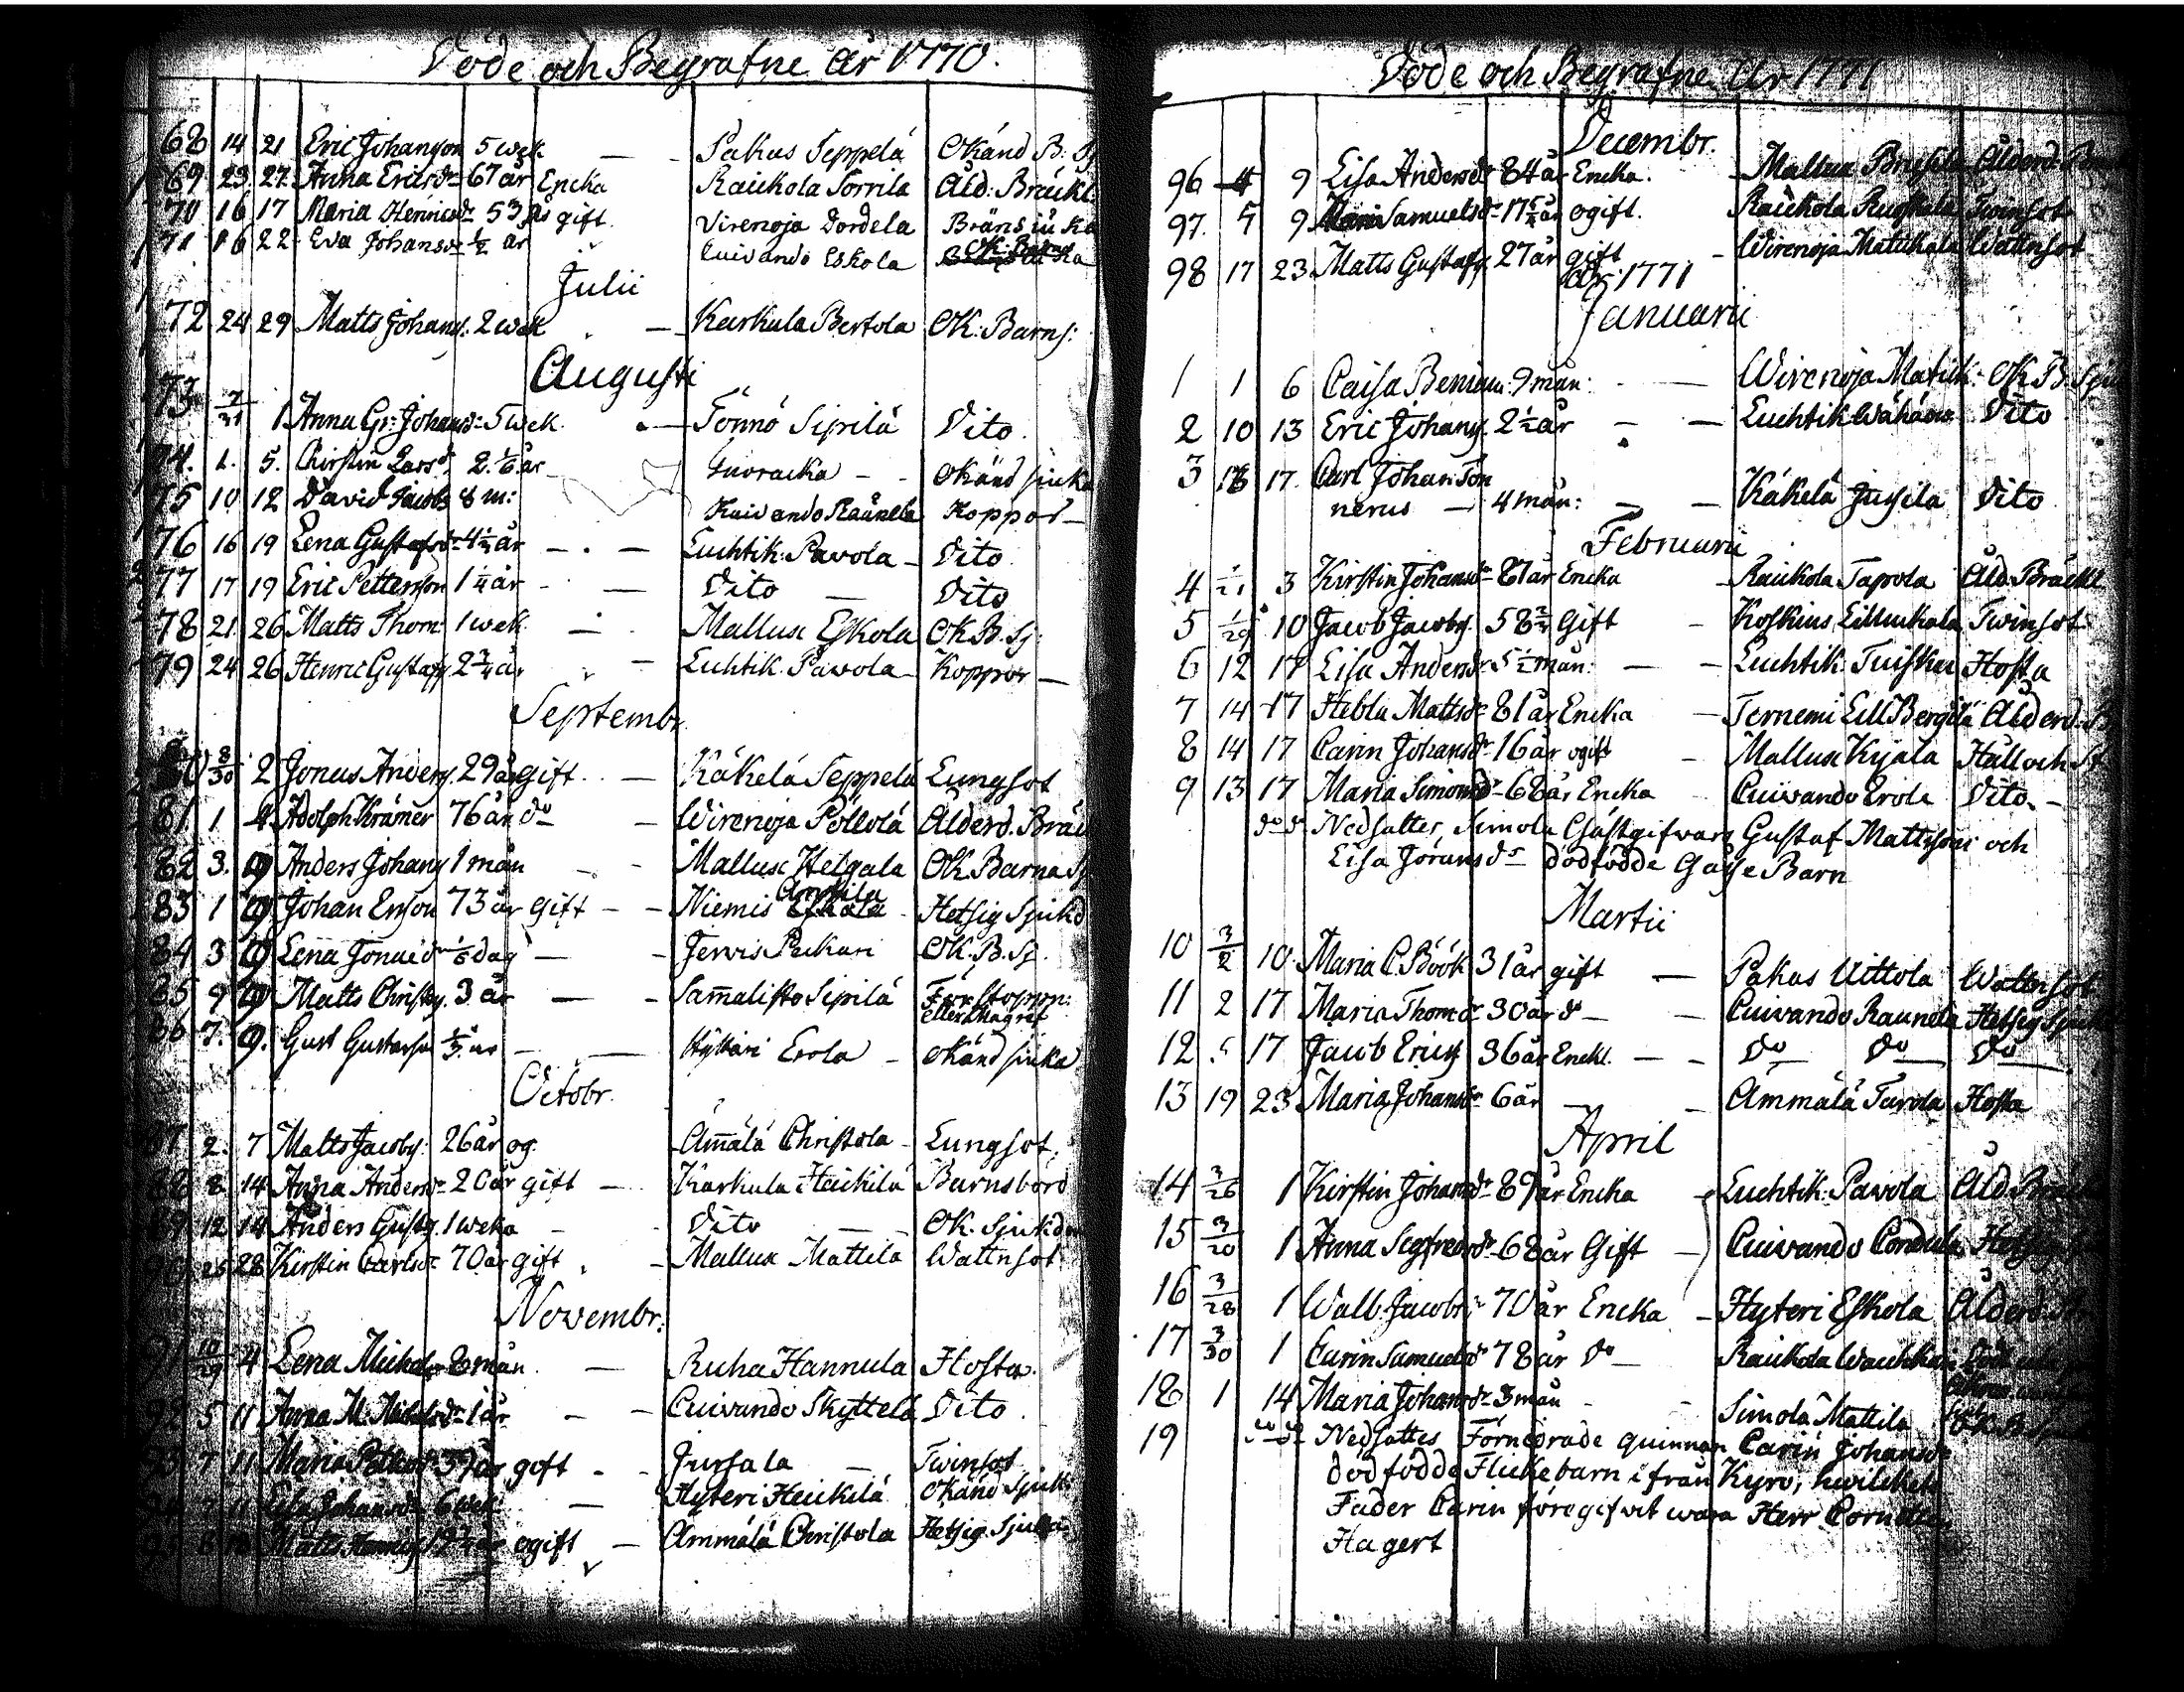 Döde och Begrafne år 1770.
68 14 21 Eric Johanson 5 wek. — Pakas Seppelä Okänd B. Sj
69 23. 27. Anna Ericsdr 67 år Encka Raickola Sorrila Åld: Bräckl.
70 16 17 Maria Henricsdr 53 år gift. Virenoja Dordela Bränsju ka
71 16 22 Eva Johansdr ½ år Cuivando Eskola OK. Barns
Julii
72 24 29 Matts Johans. 2 wek — Karkula Bertola OK: Barns:
Augusti
73 7/31 1 Anna Gr: Johansdr 5 wek. — Tönnö Sipilä Dito.
74. 1. 5. Chirstin Larsd. 2 1/6 år Suoracka — Okänd siuka
75 10 12 David Jacobs 8 m: Kuivando Raunela Koppor —
76 16 19 Lena Gustafsdr 4½ år — Luhtik: Pavola — Dito
77 17 19 Eric Pettersson 1¼ år — Dito — Dito
78 21. 26 Matts Thom: 1 wek. — Mallusc Eskola OK. B. Sj:
79 24 26 Henric Gustafs 2¾ år — Luhtik. Pavola — Koppor —
Septembr.
80 8/30 2 Jonas Anders. 29 år gift. — Käkelä Seppelä Lungsot
81 1 4 Adolph Krämer 76 år do — Wirenoja Pöllölä Ålderd. Bräck
82 3. 9 Anders Johans 1 mån Mallusc Helgala OK Barna Sj
83 1 9 Johan Ersson 73 år Gift — Niemis Anttila Hetsig Sjukd
84 3 9 Lena Jonaed. 1/6 dag — Jervis Peckari OK. B. Sj.
85 9 9 Matts Christs. 3 år — Samalisto Sipilä Förstoppn:
eller Magref
86 7. 9. Gust Gustafson 1/3 år — Hyttäri Erola — okänd siuka
Octobr.
87 2. 7 Matts Jacobs: 26 år og. Ämälä Christola — Lungsot.
88 8 14 Anna Andersdr 20 år gift — Karkula Heickilä Barnsbörd
89 12 14 Anders Gustfs. 1 weka Dito — OK. Sjukdm
90 25 28 Kirstin Carlsdr 70 år gift. Mallusc Mattila Wattnsot
Novembr.
91 10/29 4 Lena Mickels 8 mån. — Ruha Hannula Hosta.
92 5 11 Anna M: Mickelsdr 1 år — Cuivando Skyttelä Dito.
93 7 11 Maria 37 år gift — Jursala — Twinsot
94 7 11 Johansdr 6 wek — Hyteri Heickilä okänd Sjukd
95 8 Matts ogift — Ammälä Christola Hetsig. Sjukd
Döde och Begrafne År 1771
Decembr.
96 4 9 Lisa Andersdr 84 år Encka. — Mallusc Ålderd.
97. 5 9 Maria Samuelsdr 17½ år ogift. Raickola Ruskala Twinsot
98 17 23 Matts Gustafs 27 år gift — Wirenoja Matickala Wattnsot
År 1771
Januarii
1 1 6 Caisa Beniam: 9 mån: — Wirenoja Matick: OK B. Sju
2 10 13 Eric Johans. 2½ år — Luchtik Wähä Dito
3 18 17. Carl Johan Tön
nerus — 4 mån: — Käkelä Jussila Dito
Februarii
4 1/21 3 Kirstin Johansdr 87 år Encka — Raickola Tapola Åld. Bräckl
5 1/29 10 Jacob Jacobs. 58 Gift — Koskius Lillunkala Twinsot
6 12 17 Lisa Andersdr 5½ mån: — Luchtik. Tuiska Hosta
7 14 17 Hebla Mattsdr 81 år Encka — Ternemi Lill Bergilä Ålderd. B
8 14 17 Carin Johansdr 16 år ogift — Mallusc Kyala Håll och St
9 13 17 Maria Simonsdr 68 år Encka Cuivando Erola Dito. —
do do Nedsattes, Simola Gästgifvars Gustaf Mattsons och
Lisa Jöransdr dödfödde Gåsse Barn
Martii
10 3/2 10 Maria C. Böök 31 år gift — Pakas Uittola Wattnsot
11 2 17 Maria Thomdr 30 år do — Cuivando Raunela Hetsig Sjukd
12 5 17 Jacob Erics 36 år Enckl. — Do Do Do
13 19 23 Maria Johansdr 6 år — Ammälä Tarola Hosta
April
14 3/26 1 Kirstin Johansdr 89 år Encka — Luchtik: Pavola Åld.
15 3/20 1 Anna Segfredsdr 68 år Gift — Cuivando Cordula Hetsig
16 3/28 1 Walb: Jacobsdr 70 år Encka — Hyteri Eskola Ålderd.
17 3/30 1 Carin Samuelsdr 78 år Do — Raickola
18 1 14 Maria Johansdr 3 mån — Simola Mattila OK B
19 do do Nedsattes Förnedrade quinnan Carin Johansdr
dödfödda Flickebarn ifrån Kyro, hwilckets
Fader Carin föregifvit wara Herr Cornetten
Hagert